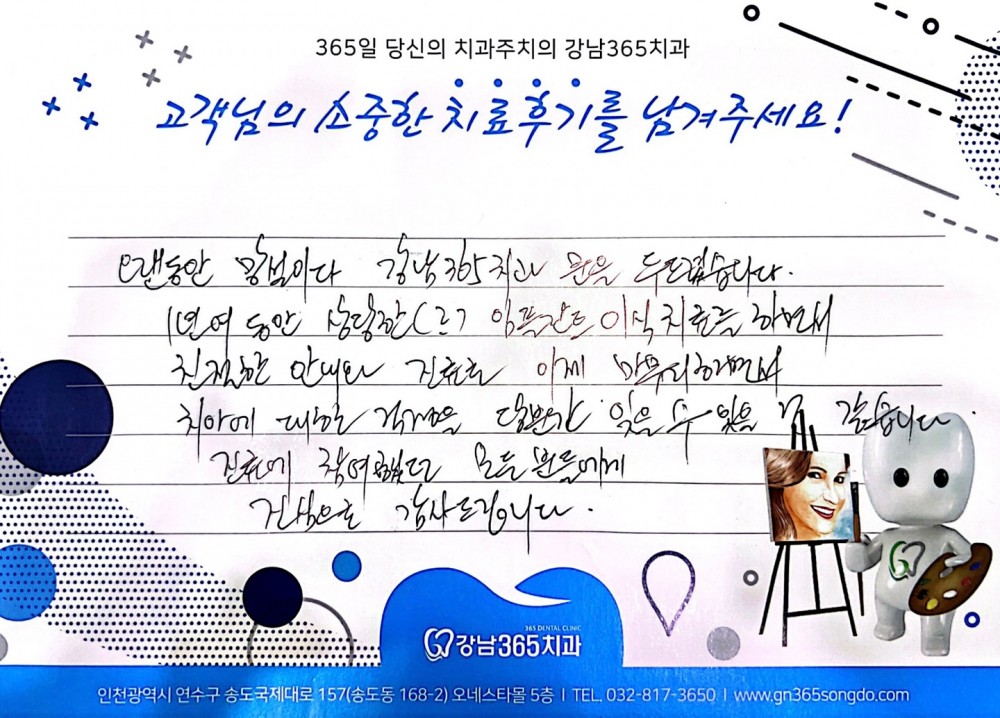 365일 당신의 치과주치의 강남365치과
고객님의 소중한 치료후기를 남겨주세요!
오랜동안 망설이다 강남365치과 문을 두드렸습니다.
1년여 동안 상당한 임플란트 이식 치료를 하면서
친절한 안내와 진료로 이제 마무리하면서
치아에 대한 걱정을 당분간 잊을 수 있을 것 같습니다.
진료에 참여했던 모든 분들에게
진심으로 감사드립니다.
365 DENTAL CLINIC
강남365치과
인천광역시 연수구 송도국제대로 157(송도동 168-2) 오네스타몰 5층 | TEL. 032-817-3650 | www.gn365songdo.com